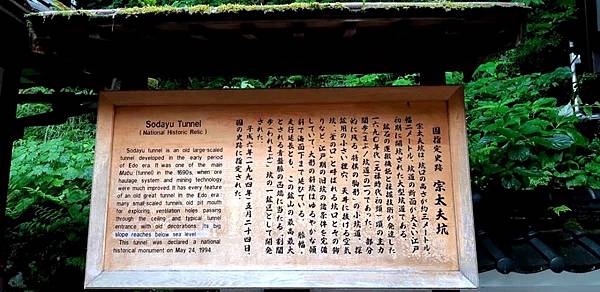 Sodayu Tunnel
(National Historic Relic)
Sodayu tunnel is an old large-scaled
tunnel developed in the early period
of Edo era. It was one of the main
Mabu (tunnel) in the 1690s, when ore
haulage system and mining technology
were much improved. It has every feature
of an old great tunnel in the Edo era:
many small-scaled tunnels, old pit mouth
for exploring, ventilation holes passing
through the ceiling, and typical tunnel
entrance with old decorations. Its big
slope reaches below sea level.
This tunnel was declared a national
historical monument on May 24, 1994.
国指定史跡 宗太夫坑
宗太夫坑は、坑口の高さが約三メートル、
幅二メートル、坑道の断面が大きい江戸
初期に開さくされた大型坑道である。
鉱石の運搬機能と採鉱技術が発達した
一六九〇年代(元禄時代)初頭頃の主力
間歩(まぶ/坑道)の一つであった。部分
的に残る将棋の駒形の小坑道、探
鉱用の小さい狸穴、天井に抜ける空気
坑、釜の口と呼ばれる坑口とその飾
りなど、江戸期の旧坑の諸条件を完備
している。大形の斜坑はゆるやかな傾
斜で海面下まで延びている。脈幅、
走行延長とも、この鉱山の最高最大
とされる青盤脈の西端に当たる割間
歩(われまぶ)坑の一鉱区として開発
された。
平成六年(一九九四年)五月二十四日、
国の史跡に指定された。